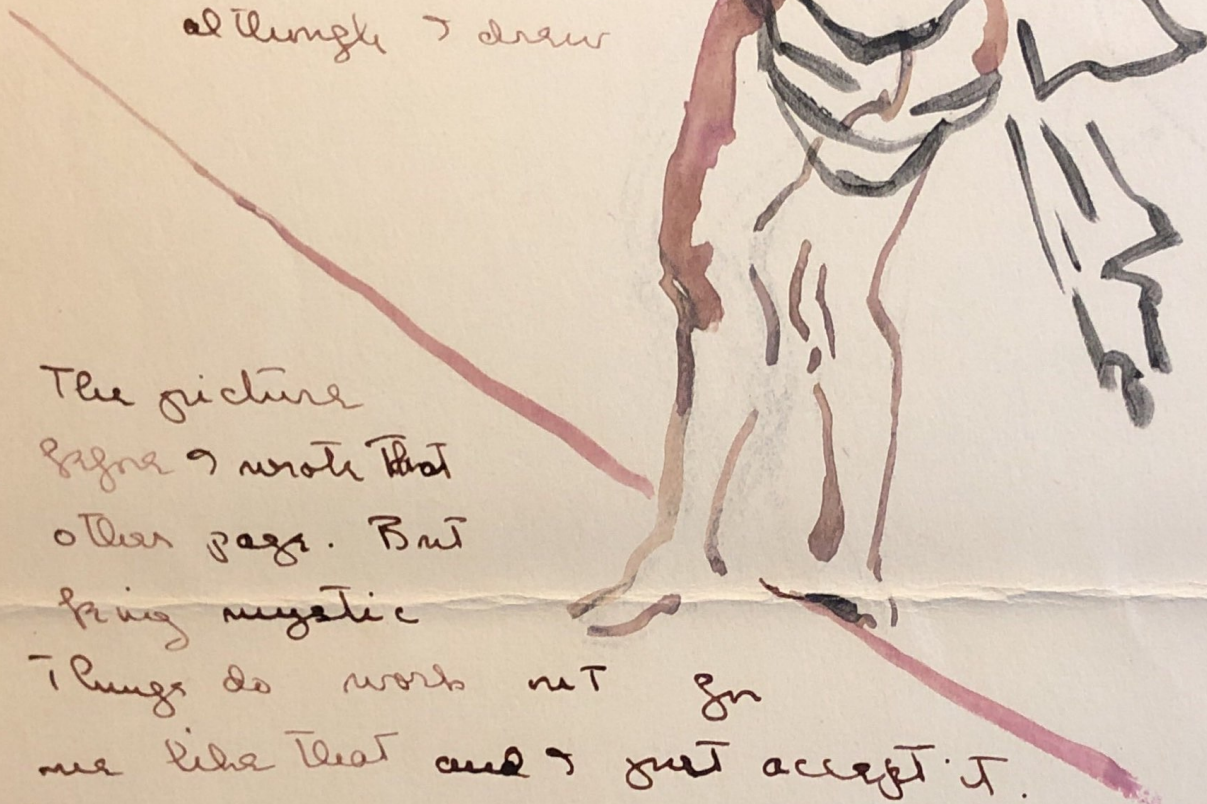 although I draw
The picture
before I wrote that
other page. But
being mystic
things do work out for
me like that and I just accept it.